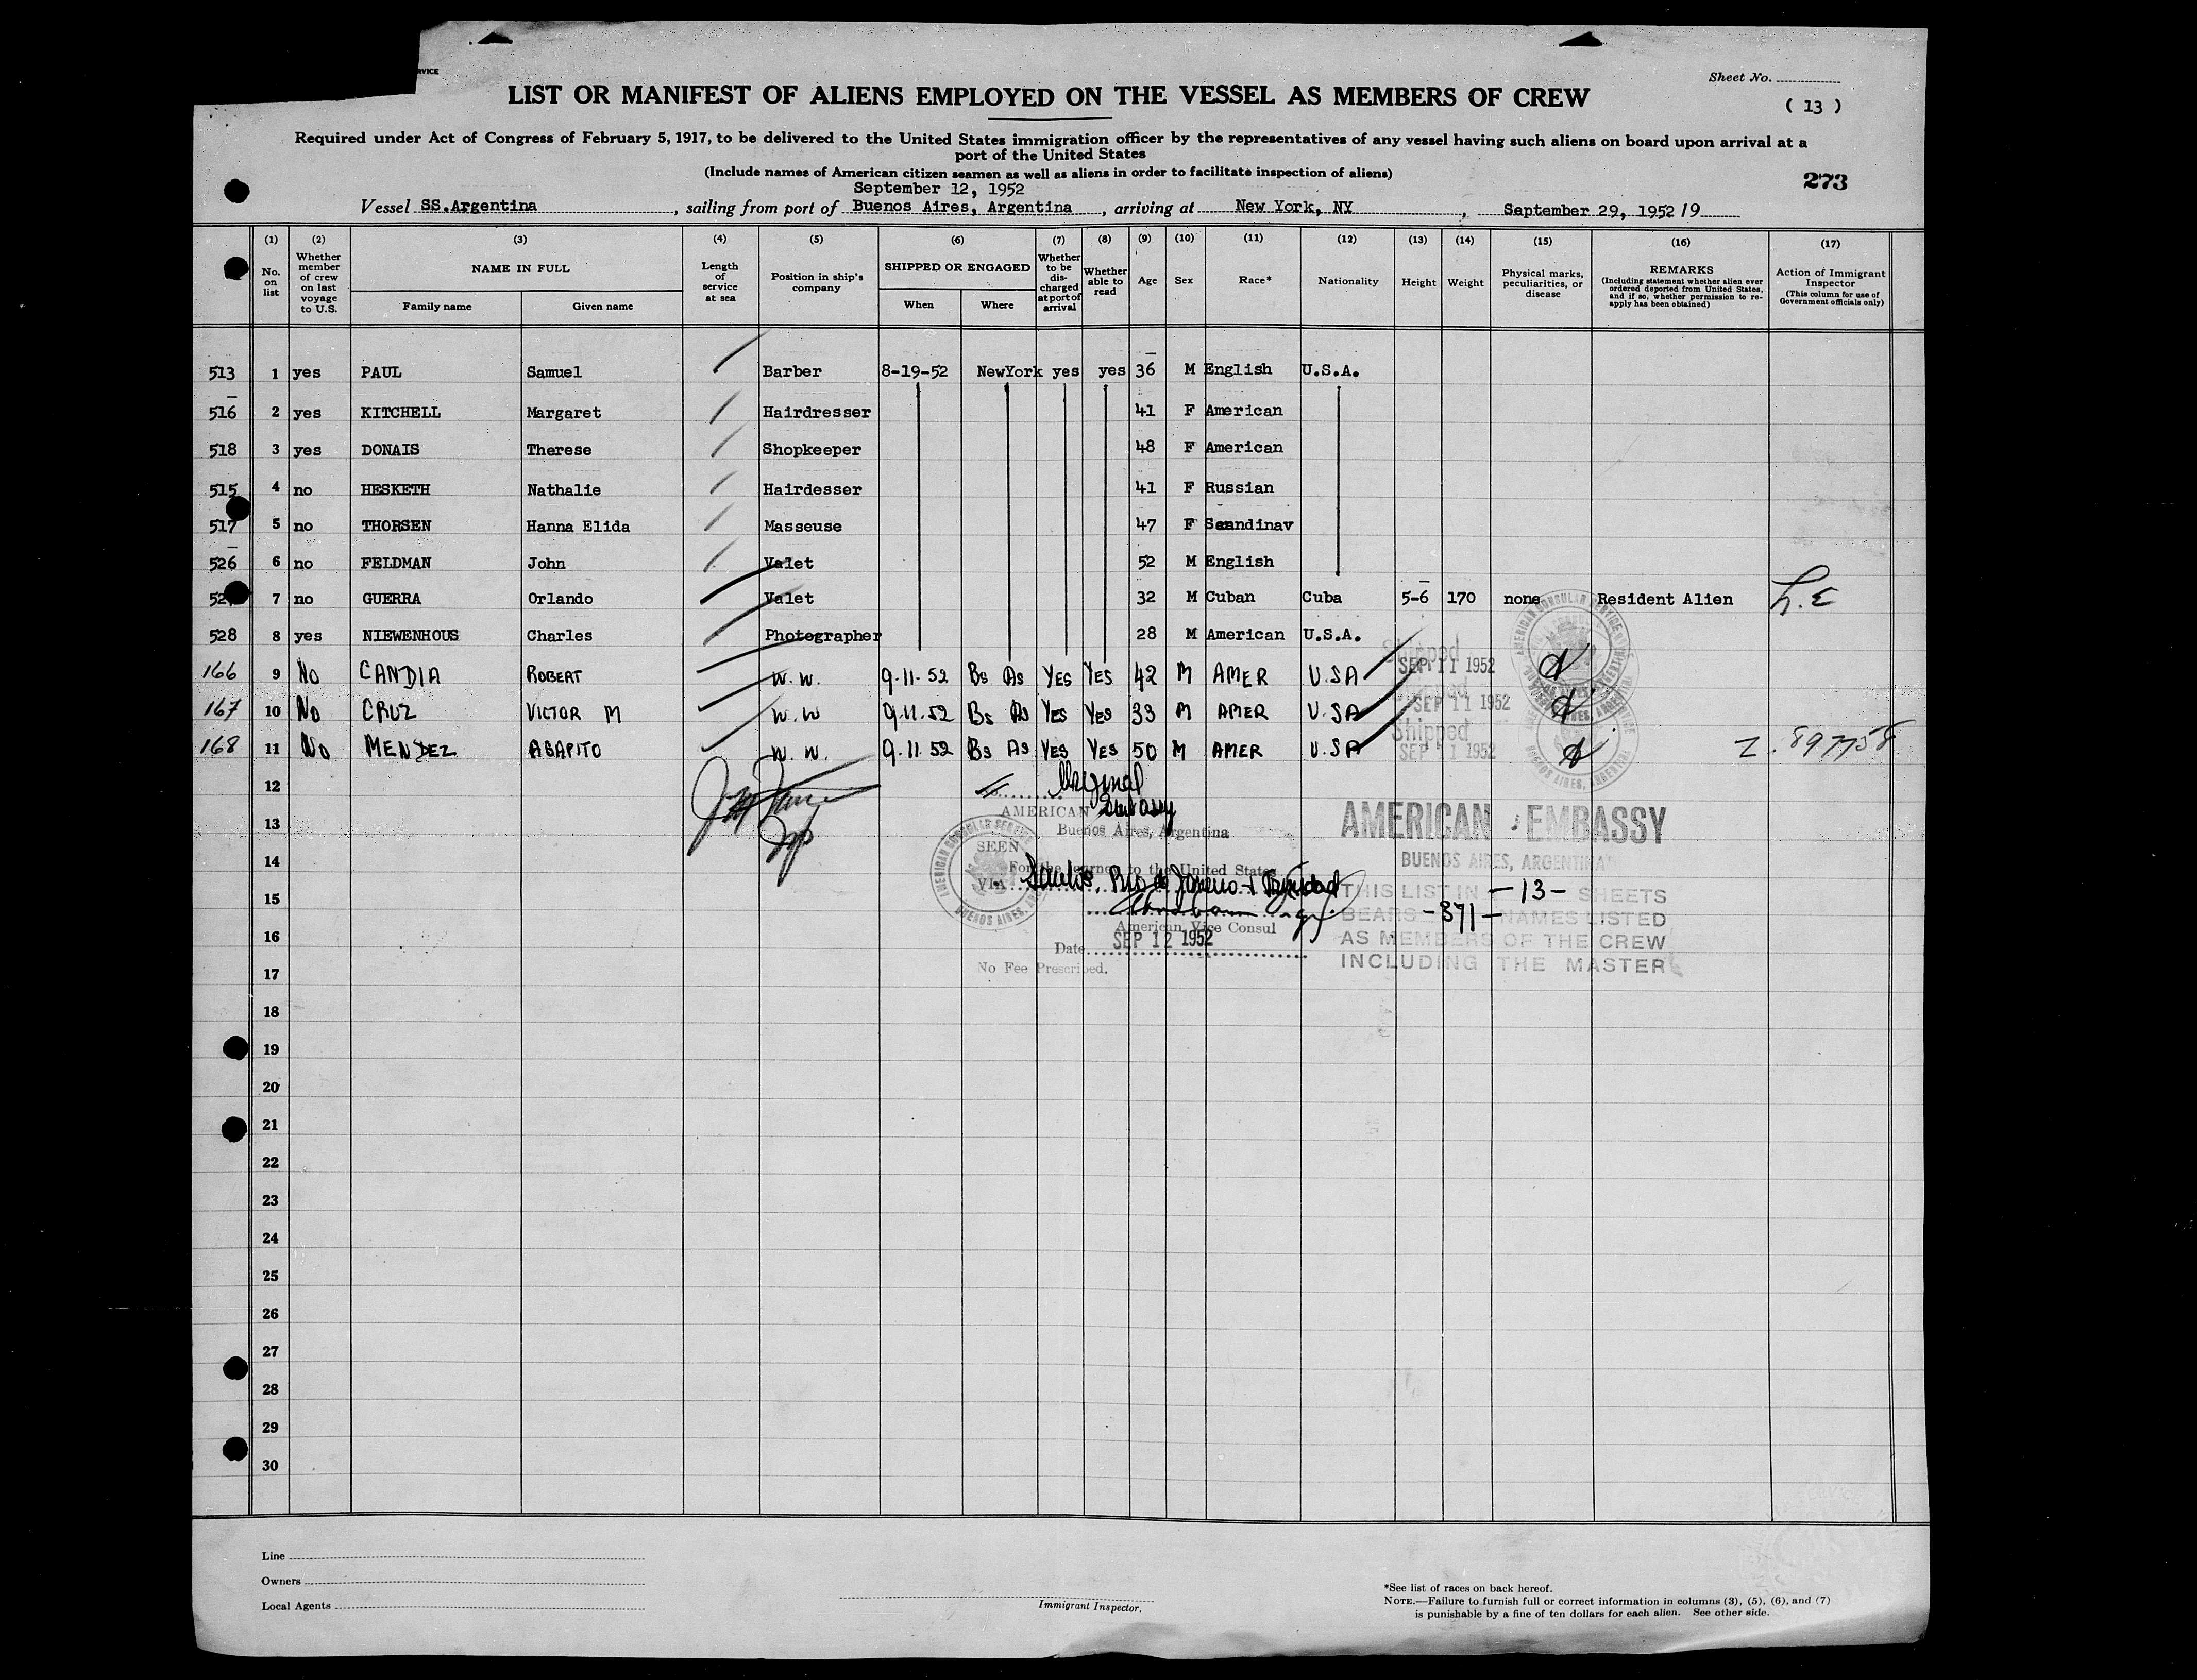 RVICE
Sheet No.
LIST OR MANIFEST OF ALIENS EMPLOYED ON THE VESSEL AS MEMBERS OF CREW
( 13 )
Required under Act of Congress of February 5, 1917, to be delivered to the United States immigration officer by the representatives of any vessel having such aliens on board upon arrival at a
port of the United States
(Include names of American citizen seamen as well as aliens in order to facilitate inspection of aliens)
273
September 12, 1952
Vessel SS.Argentina, sailing from port of Buenos Aires, Argentina, arriving at New York, NY, September 29, 1952 19
(1) (2) (3) (4) (5) (6) (7) (8) (9) (10) (11) (12) (13) (14) (15) (16) (17)
No. on list
Whether member of crew on last voyage to U.S.
NAME IN FULL
Family name
Given name
Length of service at sea
Position in ship's company
SHIPPED OR ENGAGED
When
Where
Whether to be dis-charged at port of arrival
Whether able to read
Age
Sex
Race*
Nationality
Height
Weight
Physical marks, peculiarities, or disease
REMARKS
(Including statement whether alien ever ordered deported from United States, and if so, whether permission to re-apply has been obtained)
Action of Immigrant Inspector
(This column for use of Government officials only)
513 1 yes PAUL Samuel Barber 8-19-52 NewYork yes yes 36 M English U.S.A.
516 2 yes KITCHELL Margaret Hairdresser 41 F American
518 3 yes DONAIS Therese Shopkeeper 48 F American
515 4 no HESKETH Nathalie Hairdesser 41 F Russian
517 5 no THORSEN Hanna Elida Masseuse 47 F Scandinav
526 6 no FELDMAN John Valet 52 M English
52 7 no GUERRA Orlando Valet 32 M Cuban Cuba 5-6 170 none Resident Alien
528 8 yes NIEWENHOUS Charles Photographer 28 M American U.S.A.
166 9 No CANDIA ROBERT W. W. 9-11-52 Bs As YES YES 42 M AMER U.SA Shipped SEP 11 1952
167 10 No CRUZ VICTOR M W. W 9-11-52 Bs As Yes Yes 33 M AMER U.SA Shipped SEP 11 1952
168 11 No MENDEZ AGAPITO W. W. 9-11 52 Bs As YES YES 50 M AMER U.SA Shipped SEP 11 1952
12
13
14
15
16
17
18
19
20
21
22
23
24
25
26
27
28
29
30
Original
AMERICAN Embassy
Buenos Aires, Argentina
SEEN
For the journey to the United States
VIA Santos, Rio de Janeiro + Trinidad
American Vice Consul
Date SEP 12 1952
No Fee Prescribed.
AMERICAN CONSULAR SERVICE
BUENOS AIRES, ARGENTINA
AMERICAN EMBASSY
BUENOS AIRES, ARGENTINA
THIS LIST IN -13- SHEETS
BEARS -371- NAMES LISTED
AS MEMBERS OF THE CREW
INCLUDING THE MASTER
Line
Owners
Local Agents
Immigrant Inspector.
*See list of races on back hereof.
NOTE.—Failure to furnish full or correct information in columns (3), (5), (6), and (7)
is punishable by a fine of ten dollars for each alien. See other side.